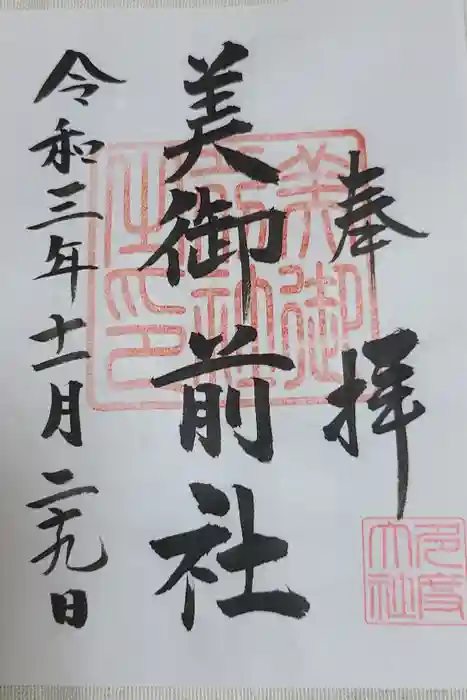 奉拝
美御前社
令和三年十一月二十九日
美御
前社
之印
多度
大社